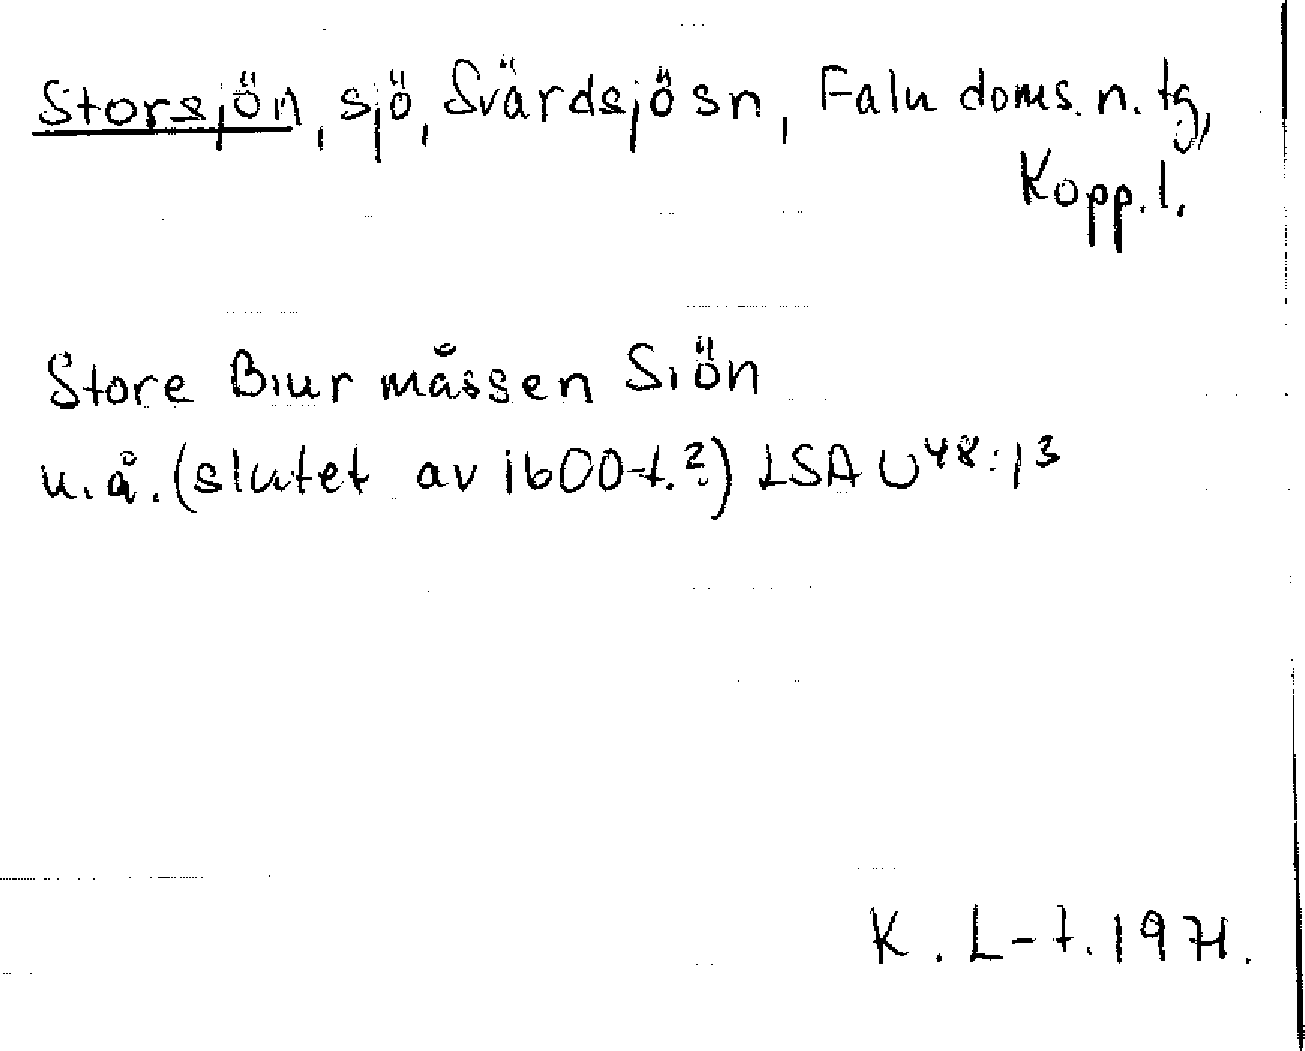 Storsjön, sjö, Svärdsjö sn, Falu doms. n. tg,
Kopp. l.
Store Biur måssen Siön
u.å. (slutet av 1600-t.?) LSA U48:13
K. L-t. 1971.